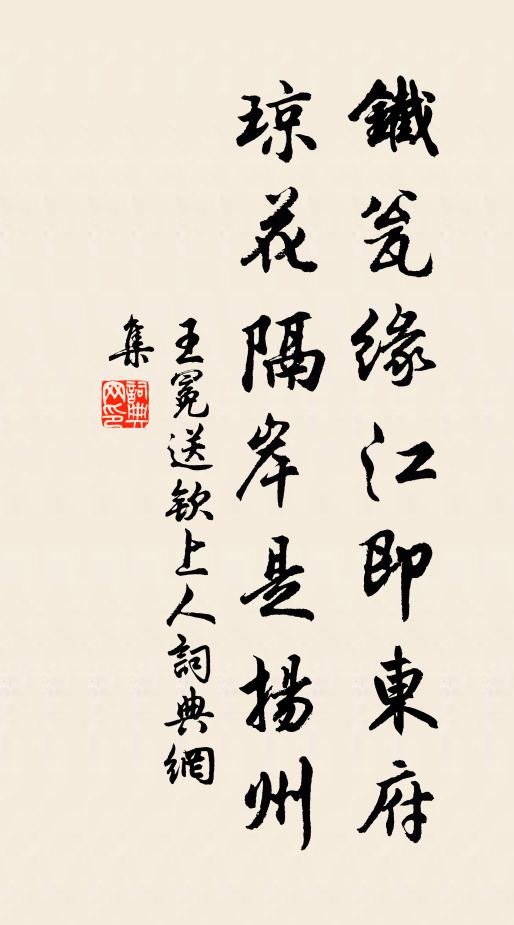 鐵瓮緣江即東府
琼花隔岸是揚州
王冕送欽上人詞典網
集
詞典網印